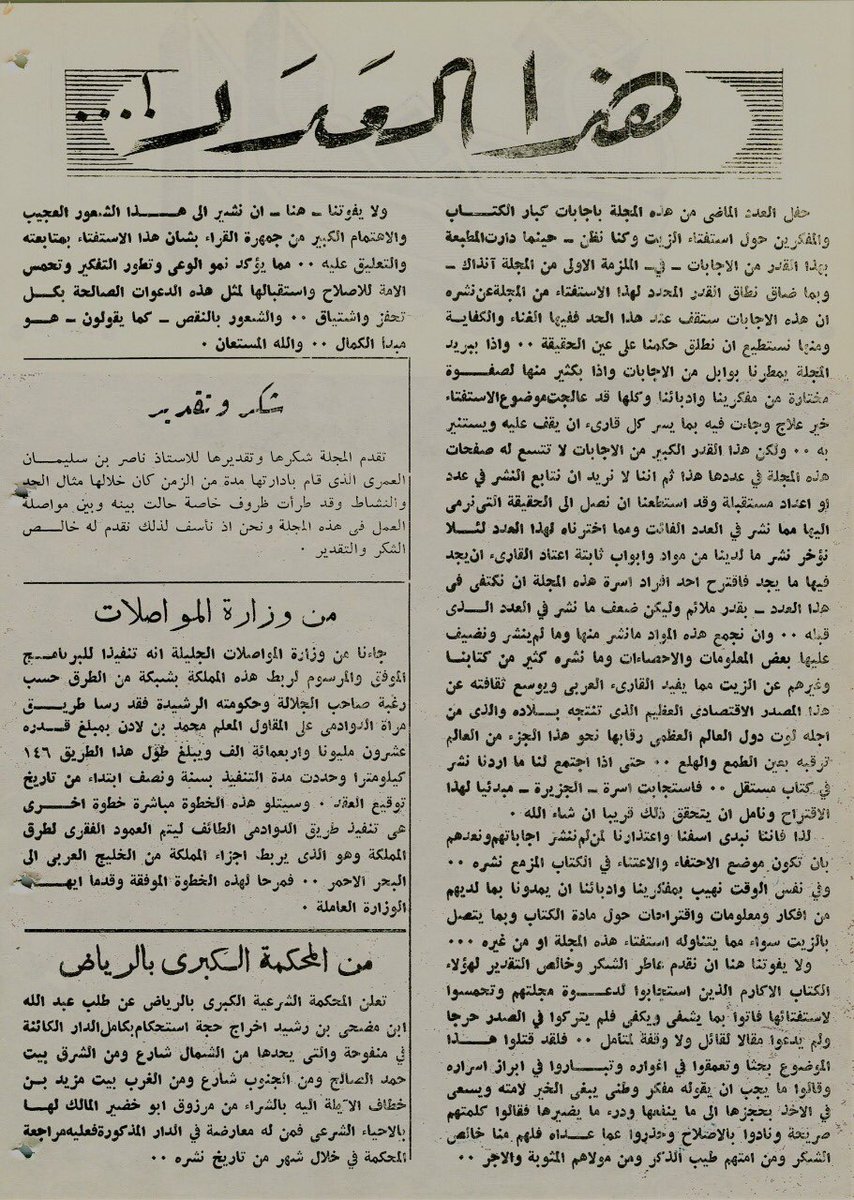 هذا العدد ..!
حفل العدد الماضى من هذه المجلة باجابات كبار الكتـــاب
والمفكرين حول استفتاء الزيت وكنا نظن ـ حينما دارت المطبعة
بهذا القدر من الاجابات ـ في ـ الملزمة الاولى من المجلة آنذاك ـ
وبما ضاق نطاق القدر المحدد لهذا الاستفتاء من المجلة عن نشره
ان هذه الاجابات ستقف عند هذا الحد ففيها الغناء والكفاية
ومنها نستطيع ان نطلق حكمنا على عين الحقيقة ٠٠ واذا ببريد
المجلة يمطرنا بوابل من الاجابات واذا بكثير منها لصفــوة
مختارة من مفكرينا وادبائنا وكلها قد عالجت موضوع الاستفتاء
خير علاج وجاءت فيه بما يسر كل قارىء ان يقف عليه ويستنير
به ٠٠ ولكن هذا القدر الكبير من الاجابات لا تتسع له صفحات
هذه المجلة في عددها هذا ثم اننا لا نريد ان نتابع النشر في عدد
او اعداد مستقبلة وقد استطعنا ان نصل الى الحقيقة التى نرمى
اليها مما نشر في العدد الفائت ومما اخترناه لهذا العدد لئــلا
نؤخر نشر ما لدينا من مواد وابواب ثابتة اعتاد القارىء ان يجد
فيها ما يجد فاقترح احد افراد اسرة هذه المجلة ان نكتفى فى
هذا العدد ـ بقدر ملائم وليكن ضعف ما نشر في العدد الــذى
قبله ٠٠ وان نجمع هذه المواد مانشر منها وما لم ينشر ونضيف
عليها بعض المعلومات والاحصاءات وما نشره كثير من كتابنــا
وغيرهم عن الزيت مما يفيد القارىء العربى ويوسع ثقافته عن
هذا المصدر الاقتصادى العظيم الذى تنتجه بــلاده والذى من
اجله لوت دول العالم العظمى رقابها نحو هذا الجزء من العالم
ترقبه بعين الطمع والهلع ٠٠ حتى اذا اجتمع لنا ما اردنا نشر
في كتاب مستقل ٠٠ فاستجابت اسرة ـ الجزيرة ـ مبدئيا لهذا
الاقتراح ونامل ان يتحقق ذلك قريبا ان شاء الله ٠
لذا فاننا نبدى اسفنا واعتذارنا لمن لم ننشر اجاباتهم ونعدهم
بان تكون موضع الاحتفاء والاعتناء في الكتاب المزمع نشره ٠٠
وفي نفس الوقت نهيب بمفكرينا وادبائنا ان يمدونا بما لديهم
من افكار ومعلومات واقتراحات حول مادة الكتاب وبما يتصل
بالزيت سواء مما يتناوله استفتاء هذه المجلة او من غيره ٠٠٠
ولا يفوتنا هنا ان نقدم عاطر الشكر وخالص التقدير لهؤلاء
الكتاب الاكارم الذين استجابوا لدعــوة مجلتهم وتحمسوا
لاستفتائها فاتوا بما يشفى ويكفى فلم يتركوا في الصدر حرجا
ولم يدعوا مقالا لقائل ولا وقفة لمتأمل ٠٠ فلقد قتلوا هــذا
الموضوع بحثا وتعمقوا في اغواره وتبــاروا في ابراز اسراره
وقالوا ما يجب ان يقوله مفكر وطنى يبغى الخير لامته ويسعى
في الاخذ بحجزها الى ما ينفعها ودرء ما يضيرها فقالوا كلمتهم
صريحة ونادوا بالاصلاح وحذروا عما عــداه فلهم منا خالص
الشكر ومن امتهم طيب الذكر ومن مولاهم المثوبة والاجر ٠٠
ولا يفوتنا ـ هنا ـ ان نشير الى هــذا الشعور العجيب
والاهتمام الكبير من جمهرة القراء بشان هذا الاستفتاء بمتابعته
والتعليق عليه ٠٠ مما يؤكد نمو الوعى وتطور التفكير وتحمس
الامة للاصلاح واستقبالها لمثل هذه الدعوات الصالحة بكــل
تحفز واشتياق ٠٠ والشعور بالنقص ـ كما يقولون ـ هــو
مبدا الكمال ٠٠ والله المستعان ٠
شكر وتقدير
تقدم المجلة شكرها وتقديرها للاستاذ ناصر بن سليمــان
العمرى الذى قام بادارتها مدة من الزمن كان خلالها مثال الجد
والنشاط وقد طرأت ظروف خاصة حالت بينه وبين مواصلة
العمل فى هذه المجلة ونحن اذ نأسف لذلك نقدم له خالــص
الشكر والتقدير ٠
من وزارة المواصلات
جاءنا من وزارة المواصلات الجليلة انه تنفيذا للبرنامــج
الموفق والمرسوم لربط هذه المملكة بشبكة من الطرق حسب
رغبة صاحب الجلالة وحكومته الرشيدة فقد رسا طريــق
مراة الدوادمى على المقاول المعلم محمد بن لادن بمبلغ قــدره
عشرون مليونا واربعمائة الف ويبلغ طول هذا الطريق ١٤٦
كيلومترا وحددت مدة التنفيذ بسنة ونصف ابتداء من تاريخ
توقيع العقد ٠ وسيتلو هذه الخطوة مباشرة خطوة اخــرى
هى تنفيذ طريق الدوادمى الطائف ليتم العمود الفقرى لطرق
المملكة وهو الذى يربط اجزاء المملكة من الخليج العربى الى
البحر الاحمر ٠٠ فمرحا لهذه الخطوة الموفقة وقدما ايهــا
الوزارة العاملة ٠
من المحكمة الكبرى بالرياض
تعلن المحكمة الشرعية الكبرى بالرياض عن طلب عبد الله
ابن مضحى بن رشيد اخراج حجة استحكام بكامل الدار الكائنة
في منفوحة والتى يحدها من الشمال شارع ومن الشرق بيت
حمد الصالح ومن الجنوب شارع ومن الغرب بيت مزيد بــن
خطاف الآيلة اليه بالشراء من مرزوق ابو خضير المالك لهــا
بالاحياء الشرعى فمن له معارضة في الدار المذكورة فعليه مراجعة
المحكمة في خلال شهر من تاريخ نشره ٠٠